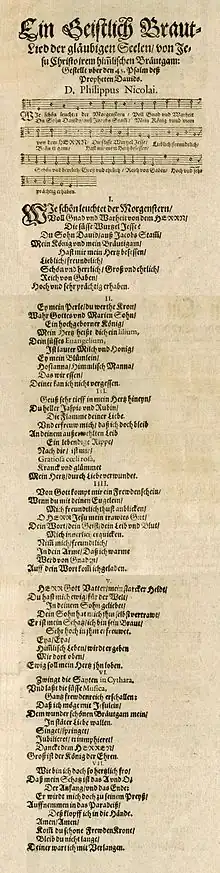 Ein Geistlich Braut-
Lied der gläubigen Seelen / von Je-
su Christo irem himlischen Bräutgam:
Gestellt vber den 45. Psalm deß
Propheten Dauids.
D. Philippus Nicolai.
WIe schön leuchtet der Morgenstern / Voll Gnad vnd Warheit
Du Sohn Dauid / auß Jacobs Stam / Mein König vnd mein
von dem HERRN / Die süsse Wurtzel Jesse /
Lieblich / freundlich /
Schön vnd herrlich / Groß vnd ehrlich / Reich von Gaben / Hoch vnd sehr
prächtig erhaben.
I.
WIe schön leuchtet der Morgenstern /
Voll Gnad vnd Warheit von dem HERRN /
Die süsse Wurtzel Jesse?
Du Sohn Dauid / auß Jacobs Stam /
Mein König vnd mein Bräutigam /
Hast mir mein Hertz besessen /
Lieblich / freundlich /
Schön vnd herrlich / Groß vnd ehrlich /
Reich von Gaben /
Hoch vnd sehr prächtig erhaben.
II.
Ey mein Perle / du werthe Kron /
Wahr Gottes vnd Marien Sohn /
Ein hochgeborner König /
Mein Hertz heißt dich ein lilium,
Dein süsses Euangelium,
Ist lauter Milch vnd Honig /
Ey mein Blümlein /
Hosianna / Himmlisch Manna /
Das wir essen /
Deiner kan ich nicht vergessen.
III.
Geuß sehr tieff in mein Hertz hineyn /
Du heller Jaspis vnd Rubin /
Die Flamme deiner Liebe.
Vnd erfrew mich / daß ich doch bleib
An deinem außerwehlten Leib
Ein lebendige Rippe /
Nach dir / ist mir /
Gratiosa cœli rosa,
Kranck vnd glümmet
Mein Hertz / durch Liebe verwundet.
IIII.
Von Gott kompt mir ein Frewdenschein /
Wenn du mit deinen Eugelein /
Mich freundlich thust anblicken /
O HERR Jesu mein trawtes Gut /
Dein Wort / dein Geist / dein Leib vnd Blut /
Mich innerlich erquicken.
Nim mich / freundlich /
In dein Arme / Daß ich warme
Werd von Gnaden /
Auff dein Wort kom ich geladen.
V.
HERR Gott Vatter / mein starcker Heldt /
Du hast mich ewig / für der Welt /
In deinem Sohn geliebet /
Dein Sohn hat mich ihm selbst vertrawt /
Er ist mein Schatz / ich bin sein Braut /
Sehr hoch in jhm erfrewet.
Eya / Eya /
Himlisch Leben / wird er geben
Mir dort oben /
Ewig soll mein Hertz jhn loben.
VI.
Zwingt die Sayten in Cythara,
Vnd laßt die süsse Musica,
Gantz frewdenreich erschallen:
Daß ich möge mit Jesulein /
Dem wunder schönen Bräutgam mein /
In stäter Liebe wallen.
Singet / springet /
Jubilieret / triumphieret /
Danckt dem HERREN /
Groß ist der König der Ehren.
VII.
Wie bin ich doch so hertzlich fro /
Daß mein Schatz ist das A vnd O /
Der Anfang / vnd das Ende:
Er wirdt mich doch zu seinem Preyß /
Auffnemmen in das Paradeiß /
Deß klopff ich in die Hände.
Amen / Amen /
Kom du schöne Frewden Krone /
Bleib du nicht lange /
Deiner wart ich mit Verlangen.